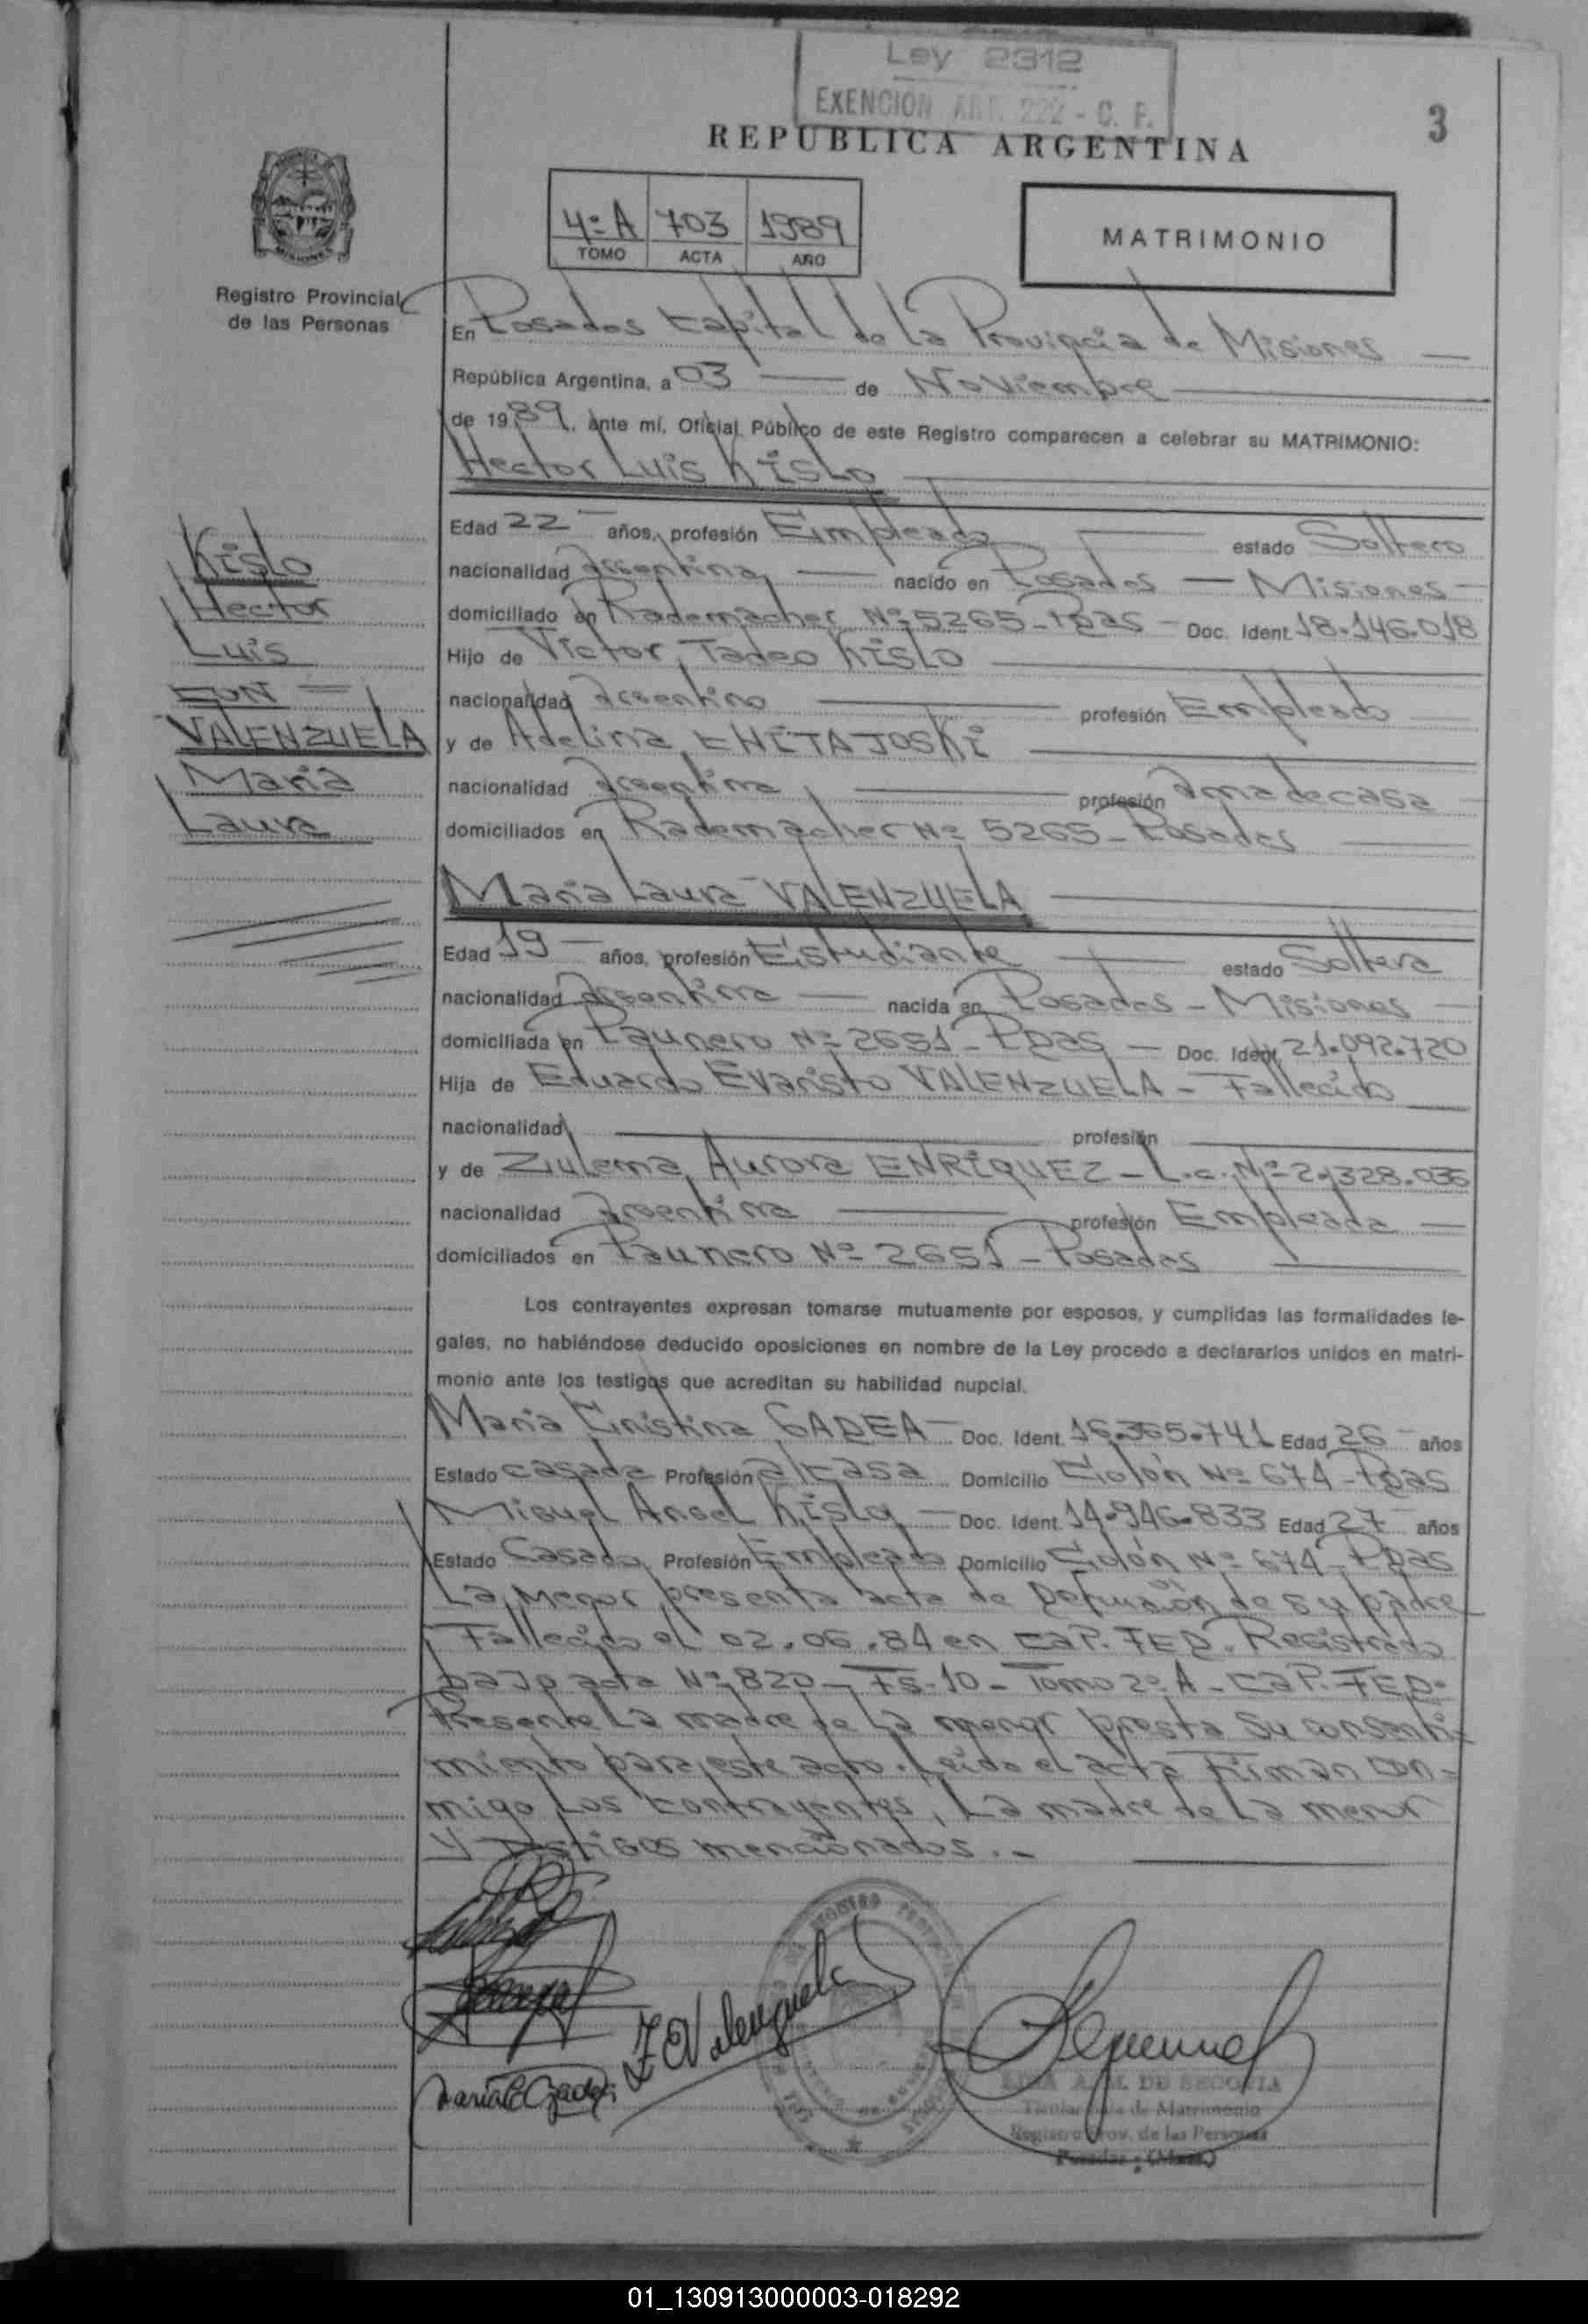 Ley 2312
EXENCION ART. 222 - C. F.
3
REPUBLICA ARGENTINA
4º A 703 1989
TOMO ACTA AÑO
MATRIMONIO
MISIONES
Registro Provincial
de las Personas
En Posadas Capital de la Provincia de Misiones
República Argentina, a 03 de Noviembre
de 1989, ante mí, Oficial Público de este Registro comparecen a celebrar su MATRIMONIO:
Hector Luis Kislo
Edad 22 años, profesión Empleado estado Soltero
nacionalidad Argentina nacido en Posadas - Misiones
domiciliado en Rademacher Nº 5265 - Pdas - Doc. Ident. 18.146.018
Hijo de Victor Tadeo Kislo
nacionalidad Argentino profesión Empleado
y de Adelina CHITAJOSKI
nacionalidad Argentina profesión ama de casa
domiciliados en Rademacher Nº 5265 - Posadas
Kislo
Hector
Luis
CON =
VALENZUELA
Maria
Laura
Maria Laura VALENZUELA
Edad 19 años, profesión Estudiante estado Soltera
nacionalidad Argentina nacida en Posadas - Misiones
domiciliada en Paunero Nº 2651 - Pdas - Doc. Ident. 21.092.720
Hija de Eduardo Evaristo VALENZUELA - Fallecido
nacionalidad profesión
y de Zulema Aurora ENRIQUEZ - L.c. Nº 2.328.036
nacionalidad Argentina profesión Empleada
domiciliados en Paunero Nº 2651 - Posadas
Los contrayentes expresan tomarse mutuamente por esposos, y cumplidas las formalidades le-
gales, no habiéndose deducido oposiciones en nombre de la Ley procedo a declararlos unidos en matri-
monio ante los testigos que acreditan su habilidad nupcial.
Maria Cristina GADEA - Doc. Ident. 16.365.741 Edad 26 años
Estado casada Profesión a/casa Domicilio Colón Nº 674 - Pdas
Miguel Angel Kislo - Doc. Ident. 14.946.833 Edad 27 años
Estado Casado Profesión Empleado Domicilio Colón Nº 674 - Pdas
La Menor presenta acta de Defunción de su padre
Fallecido el 02.06.84 en CaP. FED. Registrado
bajo acta Nº 820 - Fs. 10 - Tomo 2º A - CaP. FED.
Presente la madre de la menor presta su consenti-
miento para este acto. Leida el acta Firman con-
migo los contrayentes, La madre de la menor
y testigos mencionados. -
Z E Valenzuela
Maria C Gadea
DE SEGOVIA
Titular Sala de Matrimonio
Registro Prov. de las Personas
Posadas - (Mnes.)
01_130913000003-018292